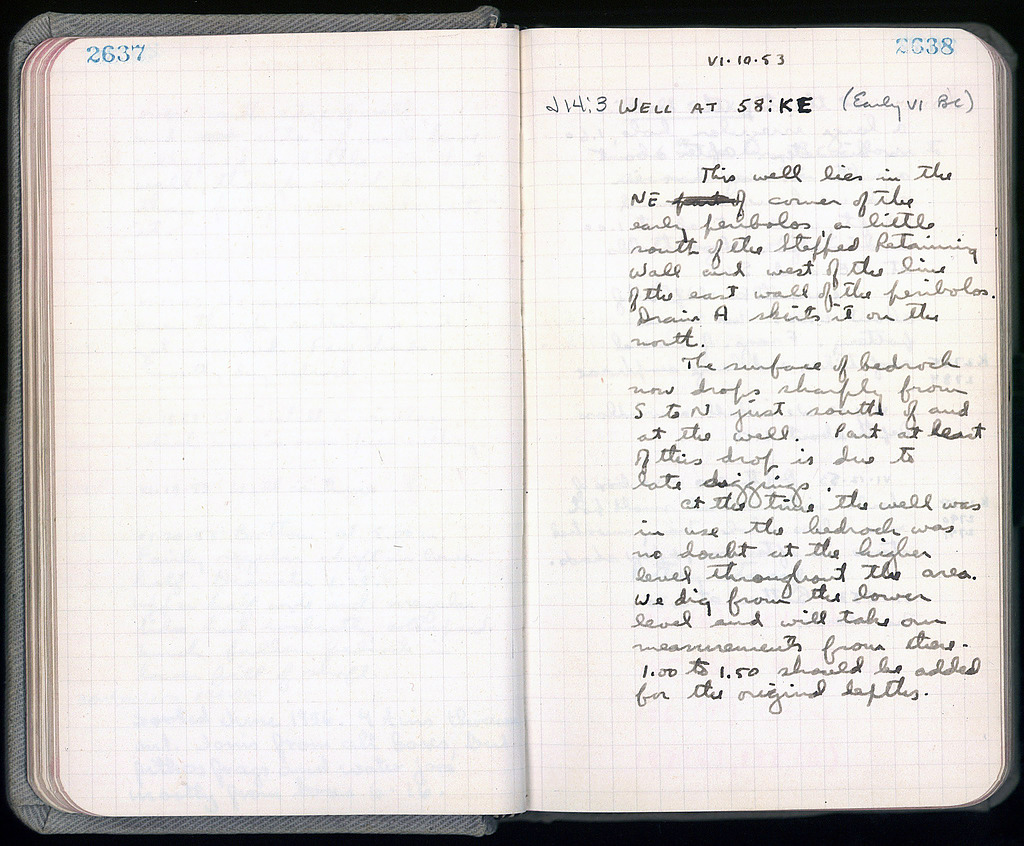 2637
2638
VI·10·53
J14:3 WELL AT 58:KE (Early VI BC)
This well lies in the
NE part of corner of the
early peribolos, a little
south of the Stepped Retaining
Wall and west of the line
of the east wall of the peribolos.
Drain A skirts it on the
north.
The surface of bedrock
now drops sharply from
S to N just south of and
at the well. Part at least
of this drop is due to
late diggings.
At the time the well was
in use the bedrock was
no doubt at the higher
level throughout the area.
We dig from the lower
level and will take our
measurements from there.
1.00 to 1.50 should be added
for the original depths.